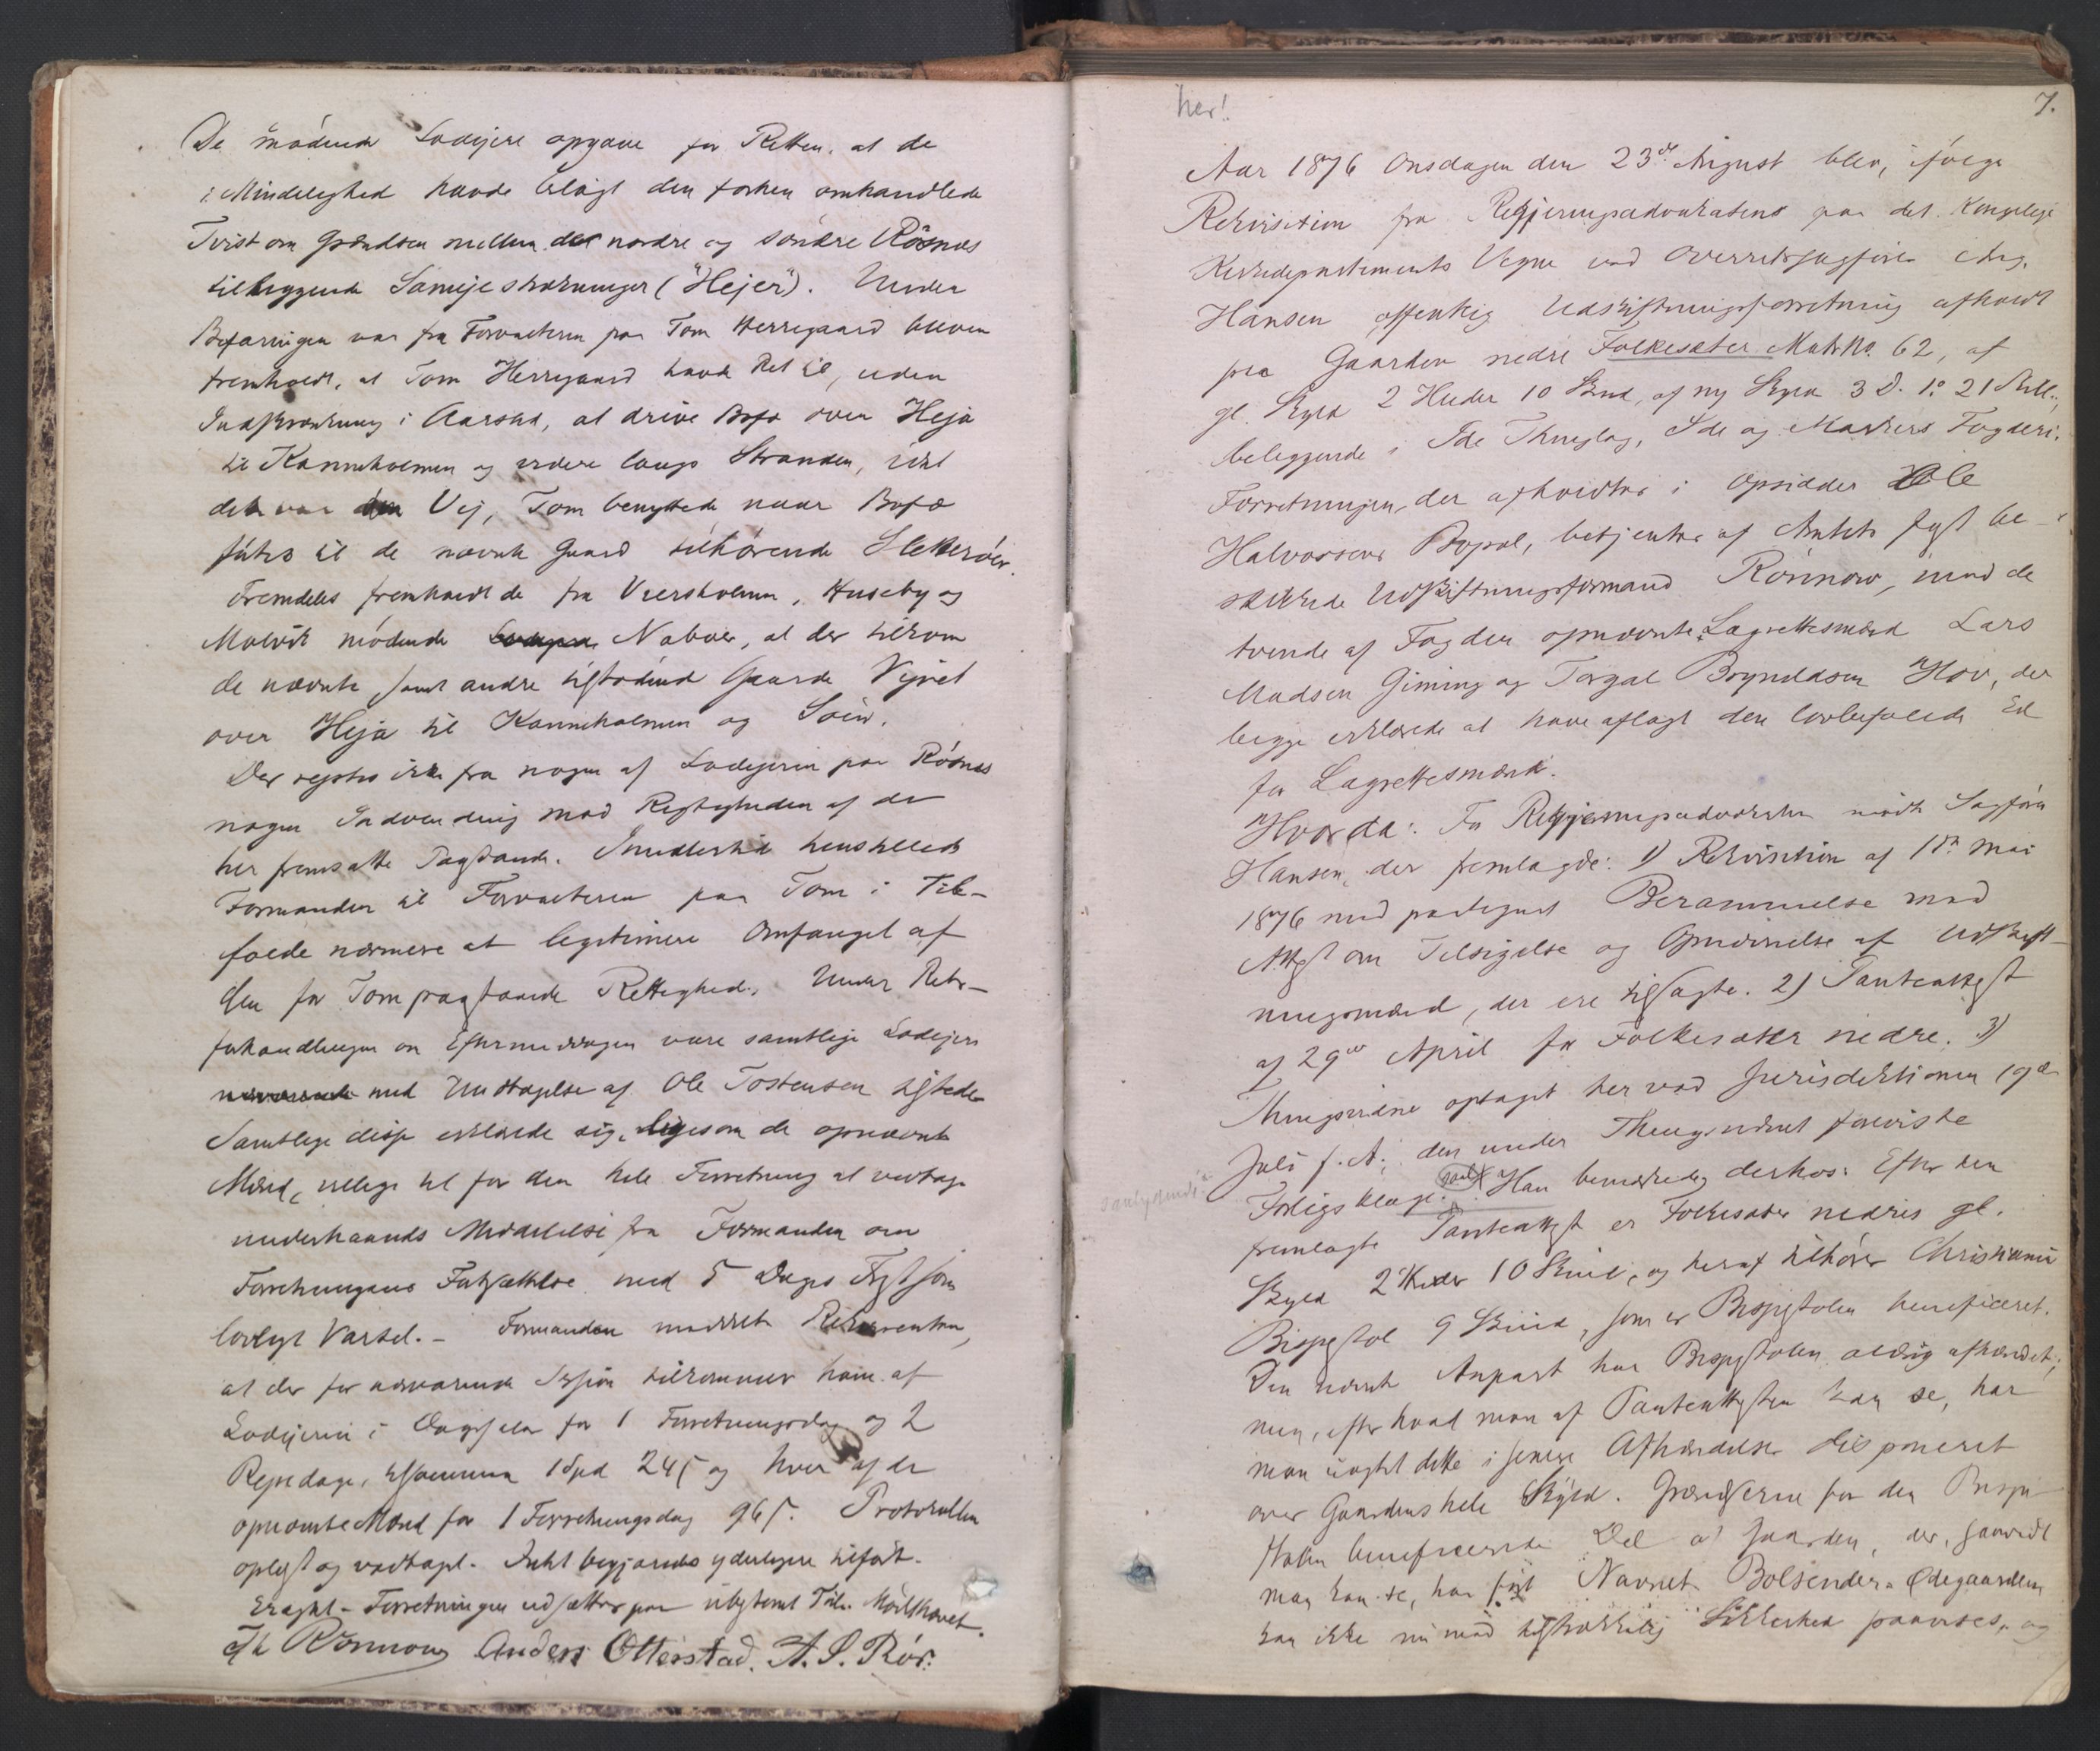 De mødende Lodejere opgave for Retten, at de
i Mindelighed havde bilagt den forhen omhandlede
Tvist om Grændsen mellem det nordre og søndre Rösnæs
tilliggende Sameje strækninger ("Hejer"). Under
Befaringen var fra Forvalteren paa Tom Herregaard bleven
fremholdt, at Tom Herregaard havde Ret til, uden
Indskrænkning i Aarstid, at drive Bufæ over Heja
til Kanneholmen og videre langs Stranden, idet
det var den Vej, Tom benyttede naar Bufæ
førtes til de nævnte Gaard tilhørende Sletterøer.
Fremdeles fremholdt de fra Vuersholmen, Huseby og
Malvik mødende Naboer, at der tilkom
de nævnte samt andre tilstødende Gaarde Vejret
over Heja til Kanneholmen og Søen.
Der rejstes ikke fra nogen af Lodejerne paa Rösnæs
nogen Indvending mod Rigtigheden af de
her fremsatte Paastande. Imidlertid henstillede
Formanden til Forvalteren paa Tom i Til-
fælde nærmere at legitimere Omfanget af
den for Tom paastaaede Rettighed. Under Rets-
forhandlingen om Eftermiddagen vare samtlige Lodejere
med Undtagelse af Ole Tostensen tilstede
Samtlige disse erklærede sig, ligesom de opnævnte
Mænd, villige til for den hele Forretning at vedtage
underhaands Meddelelse fra Formanden om
Forretningens Fortsættelse med 5 Dages Frist som
lovligt Varsel. - Formanden mærket Rekvirenten,
at der for nærværende Session tilkommer ham af
Lodejerne i Dagpenge for 1 Forretningsdag og 2
Rejsedage, tilsammen 1 Spd 24 ß og hver af de
opnævnte Mænd for 1 Forretningsdag 96 ß. Protokollen
oplæst og vedtaget. Intet begjæredes yderligere tilført.
Eragtet - Forretningen udsættes paa ubestemt Tid. Mødet hævet.
Th Rönnow Anders Otterstad. A. S. Rör.
her!
7.
Aar 1876 Onsdagen den 23de August blev, ifølge
Rekvisition fra Regjeringsadvokatens paa det Kongelige
Kirkedepartements Vegne ved Overretssagfører Chr.
Hansen offentlig Udskiftningsforretning afholdt
paa Gaarden nedre Folkesæter Matr. No. 62, af
gl. Skyld 2 Huder 10 Skind, af ny Skyld 3 D. 1 o 21 Skill.,
beliggende i Ide Thinglag, Ide og Markers Fogderi.
Forretningen, der afholdtes i Opsidder Ole
Halvorsens Bopæl, betjentes af Amtets fast be-
skikkede Udskiftningsformand Rönnow, med de
tvende af Fogden opnævnte Lagrettesmænd Lars
Madsen Giming og Torgal Brynildsen Hov, der
begge erklærede at have aflagt den lovbefalede Ed
for Lagrettesmænd.
Hvorda: For Regjeringsadvokaten mødte Sagfører
Hansen, der fremlagde: 1) Rekvisition af 18de Mai
1876 med paategnet Berammelse med
Attest om Tilsigelse og Opnævnelse af Udskift-
ningsmænd, der ere tilsagte. 2) Panteattest
af 29de April for Folkesæter nedre. 3)
Thingsvidne optaget her ved Jurisdiktionen 19de
Juli f. A.; den under Thingsvidnet foreviste
Forligsklage. Han bemærkede derhos: Efter den
fremlagte Panteattest er Folkesæter nedres gl.
Skyld 2 Huder 10 Skind, og heraf tilhører Christiania
Bispestol 9 Skind, som er Bispestolen beneficeret.
Den nævnte Anpart har Bispestolen aldrig afhændet;
men, efter hvad man af Panteattesten kan se, har
man uagtet dette i senere Afhændelse disponeret
over Gaardens hele Skyld. Grændserne for den Bispe-
stolen beneficerede Del af Gaarden, der, saavidt
man kan se, har ført Navnet Bolsender-Ødegaarden,
kan ikke nu med tilstrækkelig Sikkerhed paavises, og